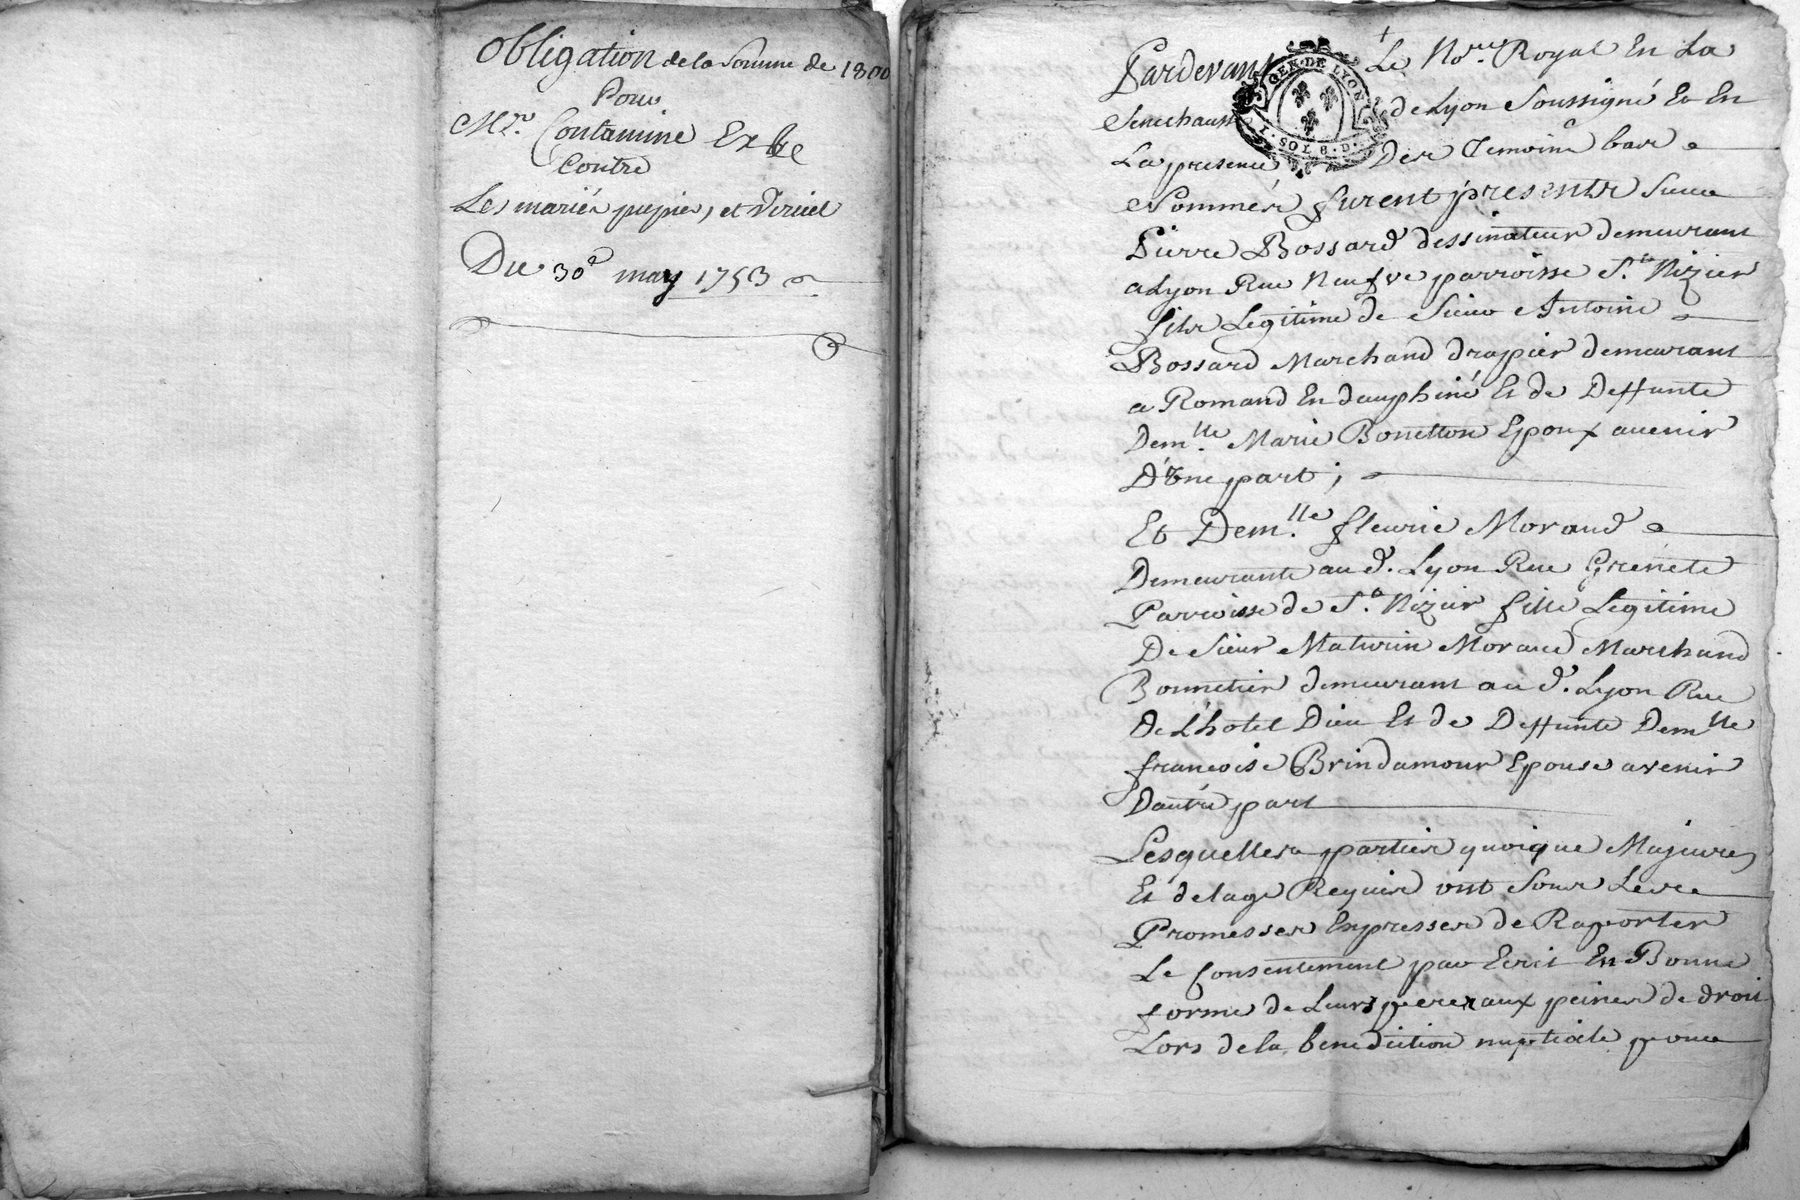 Obligation de la Somme de 1800
Pour
Mr. Contamine
Contre
Les mariés pupier, et
Du 30e may 1753
Pardevant Le Nore Royal En La
Senechaussé de Lyon Soussigné Et En
La presence Des Temoins bas
Nommés furent presents Sieur
Pierre Bossard dessinateur demeurant
a Lyon Rue Neufve parroisse St. Nizier
fils Legitime de Sieur Antoine
Bossard Marchand drapier demeurant
a Romand En dauphiné Et de Deffunte
Demlle Marie Bonetton Epoux avenir
D'Une part ;
Et Demlle fleurie Morand
Demeurante au d. Lyon Rue Grenete
Parroisse de St. Nizier fille Legitime
De Sieur Maturin Morand Marchand
Bonnetier demeurant au d. Lyon Rue
De L'hotel Dieu Et de Deffunte Demlle
francoise Brindamour Epouse avenir
Dautre part
Lesquelles parties quoique Majeures
Et delage Requis ont Sous Leurs
Promesses Expresses de Raporter
Le Consentement par Ecrit En Bonne
forme de Leurs peres aux peines de droit
Lors dela benediction nuptiale pour
GEN. DE LYON
1. SOL 8. D.